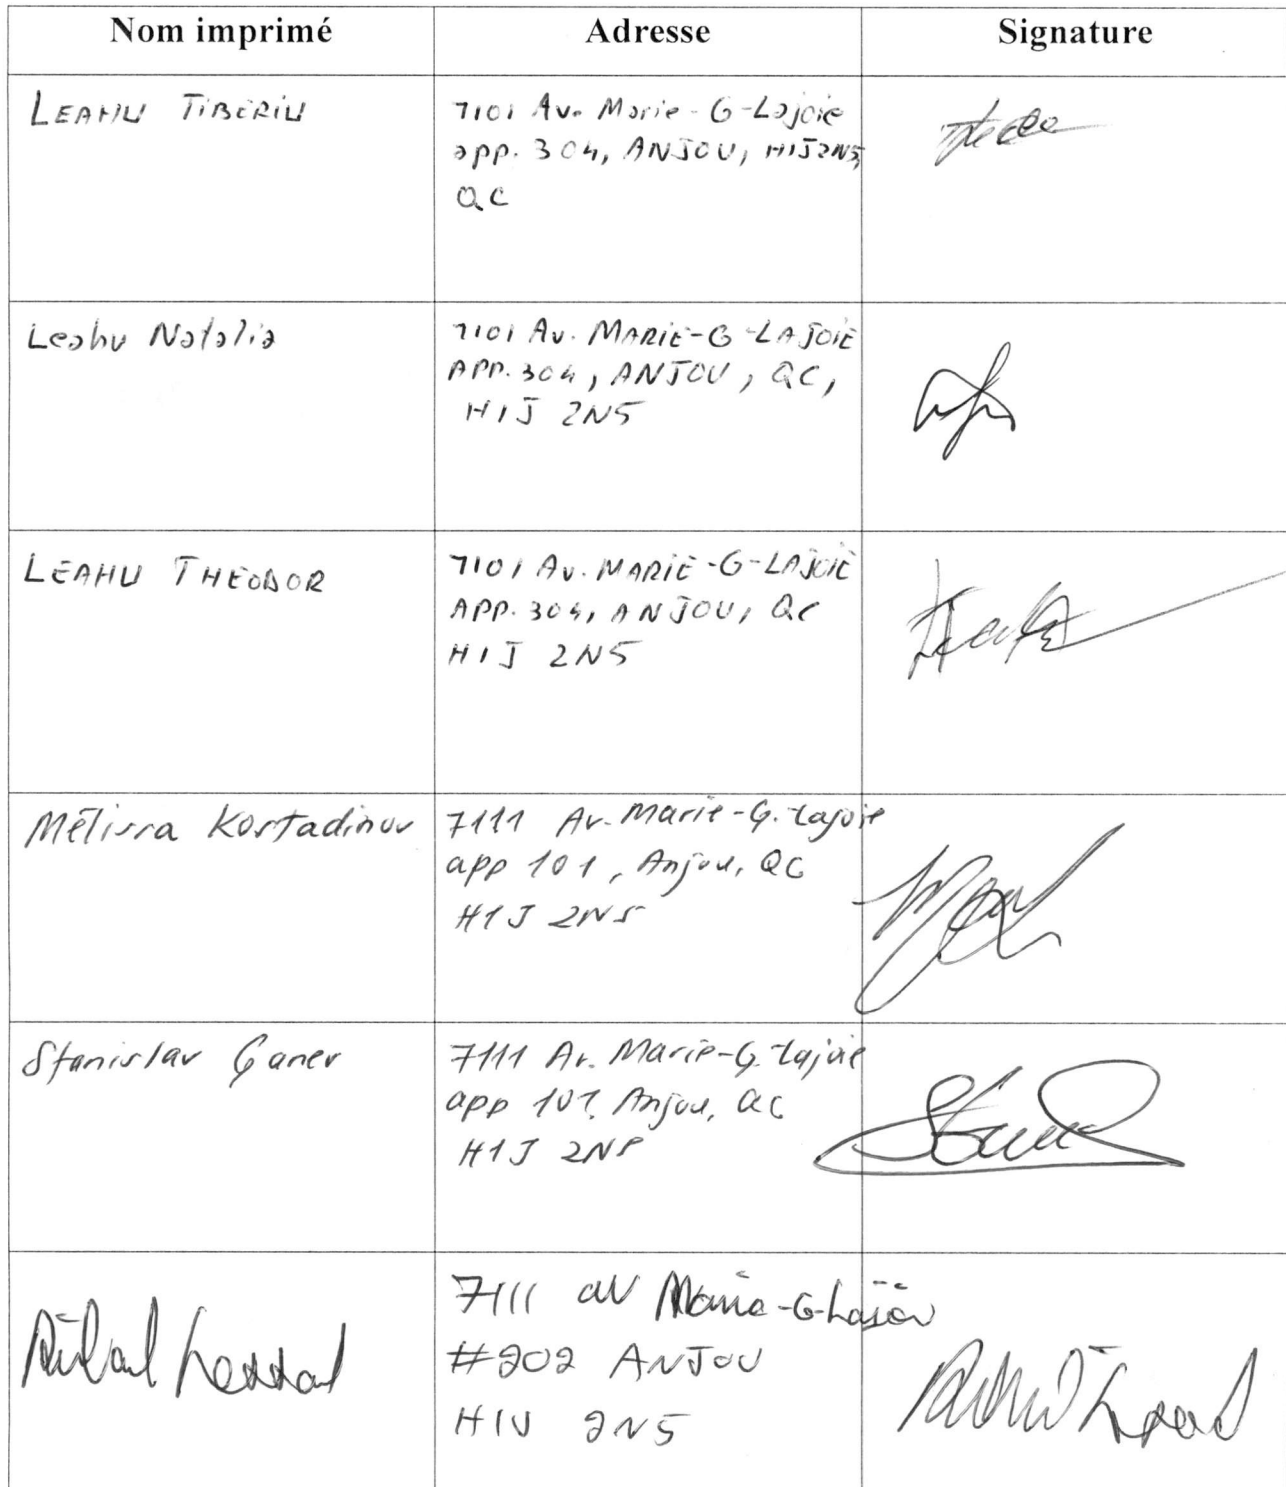 Nom imprimé
Adresse
Signature
LEAHU TIBERIU
7101 Av. Marie-G-Lajoie
app. 304, ANJOU, H1J2N5,
QC
Leahu Natalia
7101 Av. MARIE-G-LAJOIE
APP. 304, ANJOU, QC,
H1J 2N5
LEAHU THEODOR
7101 AV. MARIE-G-LAJOIE
APP. 304, ANJOU, QC
H1J 2N5
Mélissa Kostadinov
7111 Av. Marie-G. Lajoie
app 101, Anjou, QC
H1J 2N5
Stanislav Ganev
7111 Av. Marie-G. Lajoie
app 101, Anjou, QC
H1J 2N5
7111 av Marie-G-Lajoie
#202 ANJOU
H1J 2N5